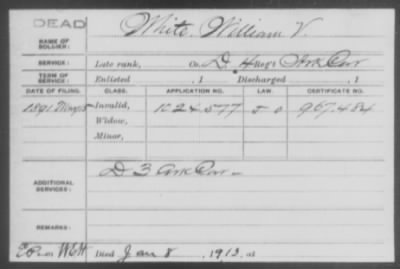 DEAD
NAME OF SOLDIER: White, William V.
SERVICE: Late rank, Co. D, 4 Reg't Ark Cav
TERM OF SERVICE: Enlisted , 1 Discharged , 1
DATE OF FILING. CLASS. APPLICATION NO. LAW. CERTIFICATE NO.
1891 May 5 Invalid, 1024577 967.484
Widow,
Minor,
ADDITIONAL SERVICES: D 3 Ark Cav -
REMARKS:
Died Jan 8, 1913, at